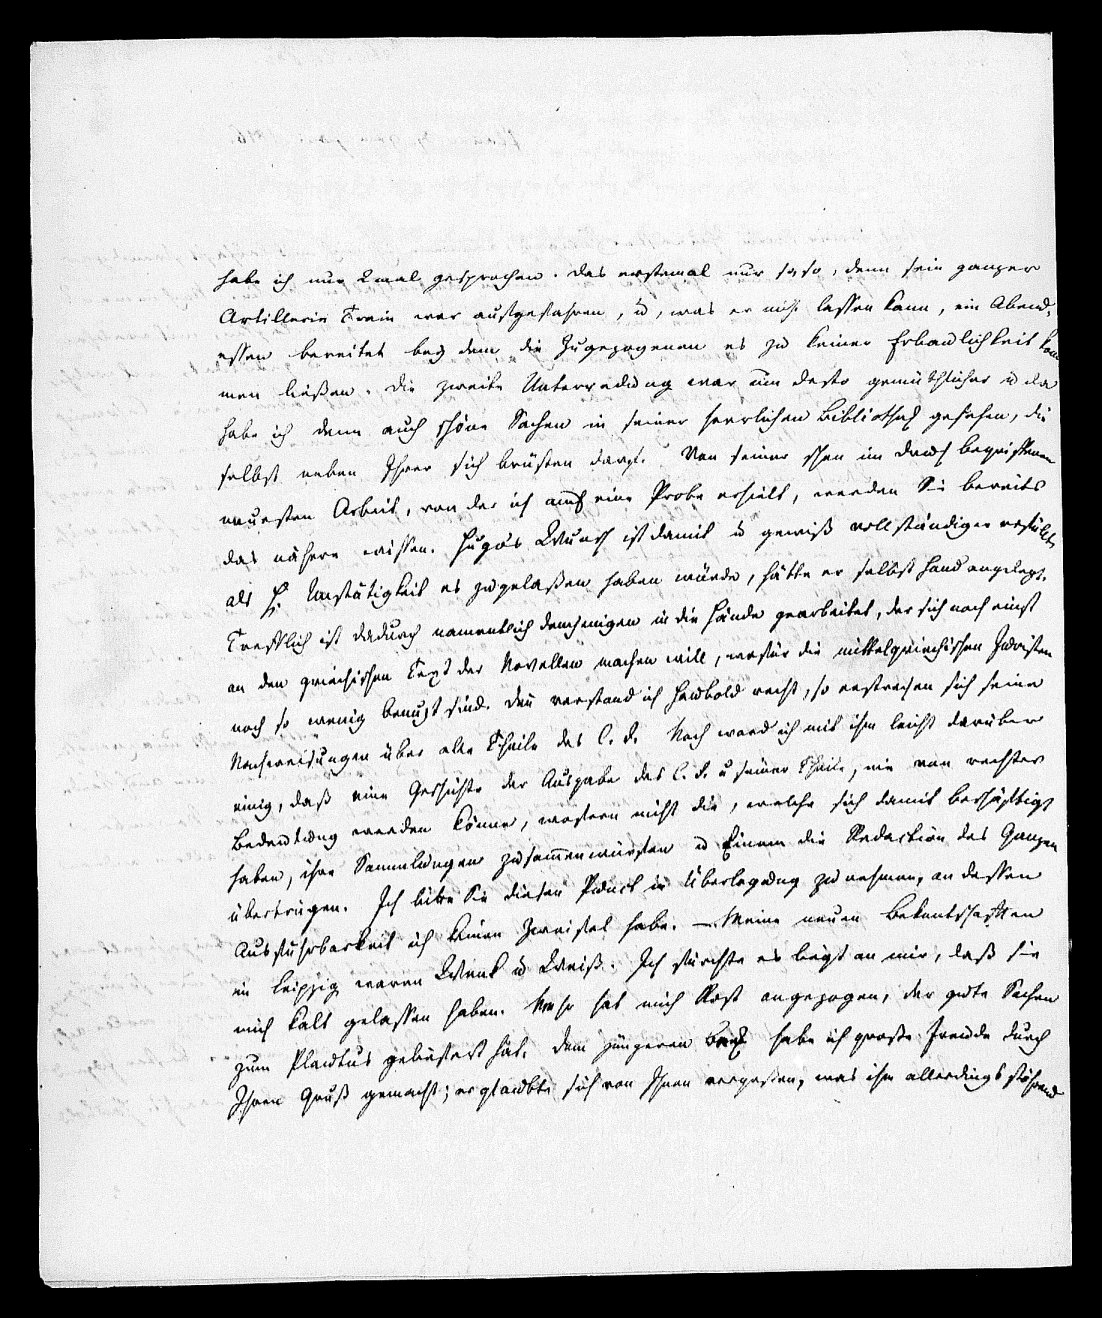 habe ich nur 2 mal gesprochen. Das erstemal nur so so, denn sein ganzer
Artillerie Train war ausgefahren, u, was er nicht lassen kann, ein Abend,
essen bereitet bey dem die Zugezogenen es zu keiner Erbaulichkeit kom
men ließen. Die zweite Unterredung war um desto gemüthlicher u da
habe ich denn auch schöne Sachen in seiner herrlichen Bibliothek gesehen, die
selbst neben Ihrer sich brüsten darf. Von seiner schon im Druck begriffenen
neuesten Arbeit, von der ich auch eine Probe erhielt, werden Sie bereits
das nähere wissen. Hugo's Wunsch ist damit u gewiß vollständiger erfüllt,
als H. Unstätigkeit es zugelaßen haben würde, hätte er selbst Hand angelegt.
Trefflich ist dadurch namentlich demjenigen in die Hände gearbeitet, der sich noch einst
an den griechischen Text der Novellen machen will, wofür die mittelgriechischen Juristen
noch so wenig benuzt sind. Denn verstand ich Haubold recht, so erstrecken sich seine
Nachweisungen über alle Theile des C. J. Noch ward ich mit ihm leicht darüber
einig, daß eine Geschichte der Ausgabe des C. J. u seiner Theile, nie von rechter
Bedeutung werden könne, wofern nicht die, welche sich damit beschäftigt
haben, ihre Sammlungen zusammenwürfen u Einem die Redaction des Ganzen
übertrügen. Ich bitte Sie diesen Punct in Überlegung zu nehmen, an dessen
Ausführbarkeit ich keinen Zweifel habe. — Meine neuen Bekantschaften
in Leipzig waren Wenk u Weiß. Ich fürchte es liegt an mir, daß sie
mich kalt gelassen haben. Mehr hat mich Rost angezogen, der gute Sachen
zum Plautus gebeistert hat. Dem jüngeren Beck habe ich große Freude durch
Ihren Gruß gemacht; er glaubte sich von Ihnen vergessen, was ihm allerdings störend